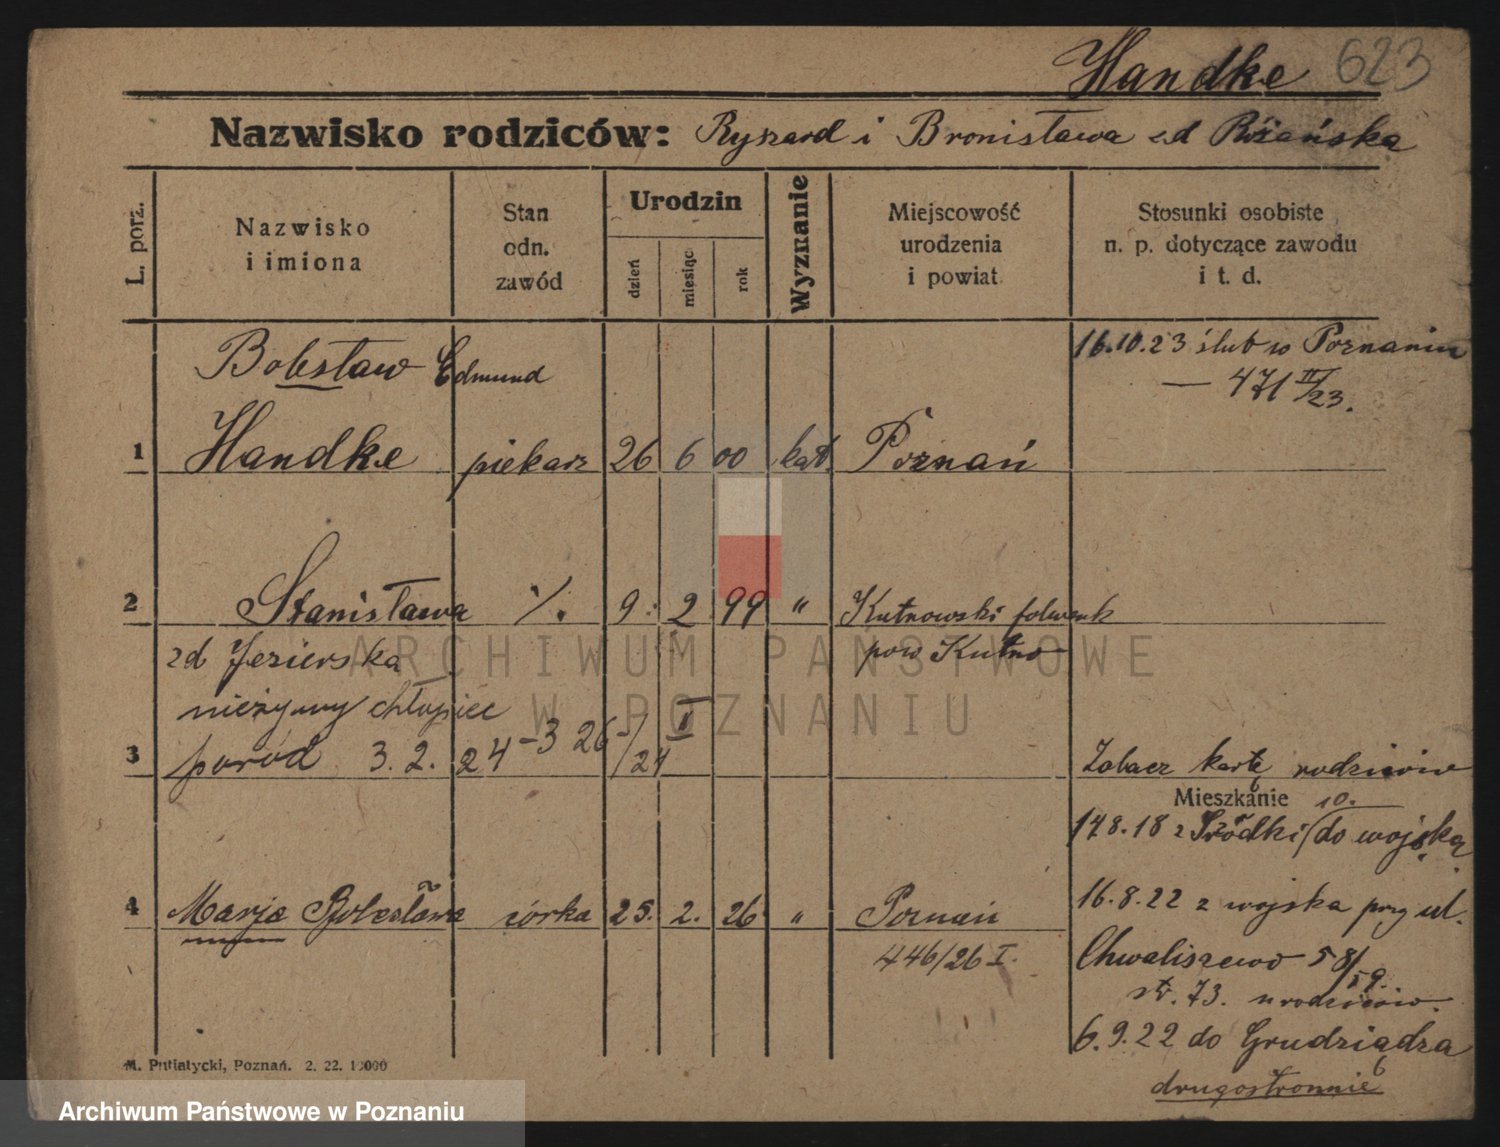 Handke 623
Nazwisko rodziców: Ryszard i Bronisława zd Różańska
L. porz.
Nazwisko
i imiona
Stan
odn.
zawód
Urodzin
dzień
miesiąc
rok
Wyznanie
Miejscowość
urodzenia
i powiat
Stosunki osobiste
n. p. dotyczące zawodu
i t. d.
Bolesław Edmund
16.10.23 ślub w Poznaniu
— 471 II/23.
1 Handke piekarz 26 6 00 kat. Poznań
2 Stanisława ·/. 9. 2 99 " Kutnowski folwark
zd Jezierska pow Kutno
nieżywy chłopiec
3 poród 3.2.24 – 326/24 II
Zobacz kartę rodziców
Mieszkanie 10.
14 8.18 z Śródki do wojska
4 Marja Bolesława córka 25. 2. 26 " Poznań
446/26 I.
16.8.22 z wojska przy ul.
Chwaliszewo 58/59.
str. 73. u rodziców.
6.9.22 do Grudziądza
drugostronnie
M. Putiatycki, Poznań. 2. 22. 10000
ARCHIWUM PAŃSTWOWE
W POZNANIU
Archiwum Państwowe w Poznaniu